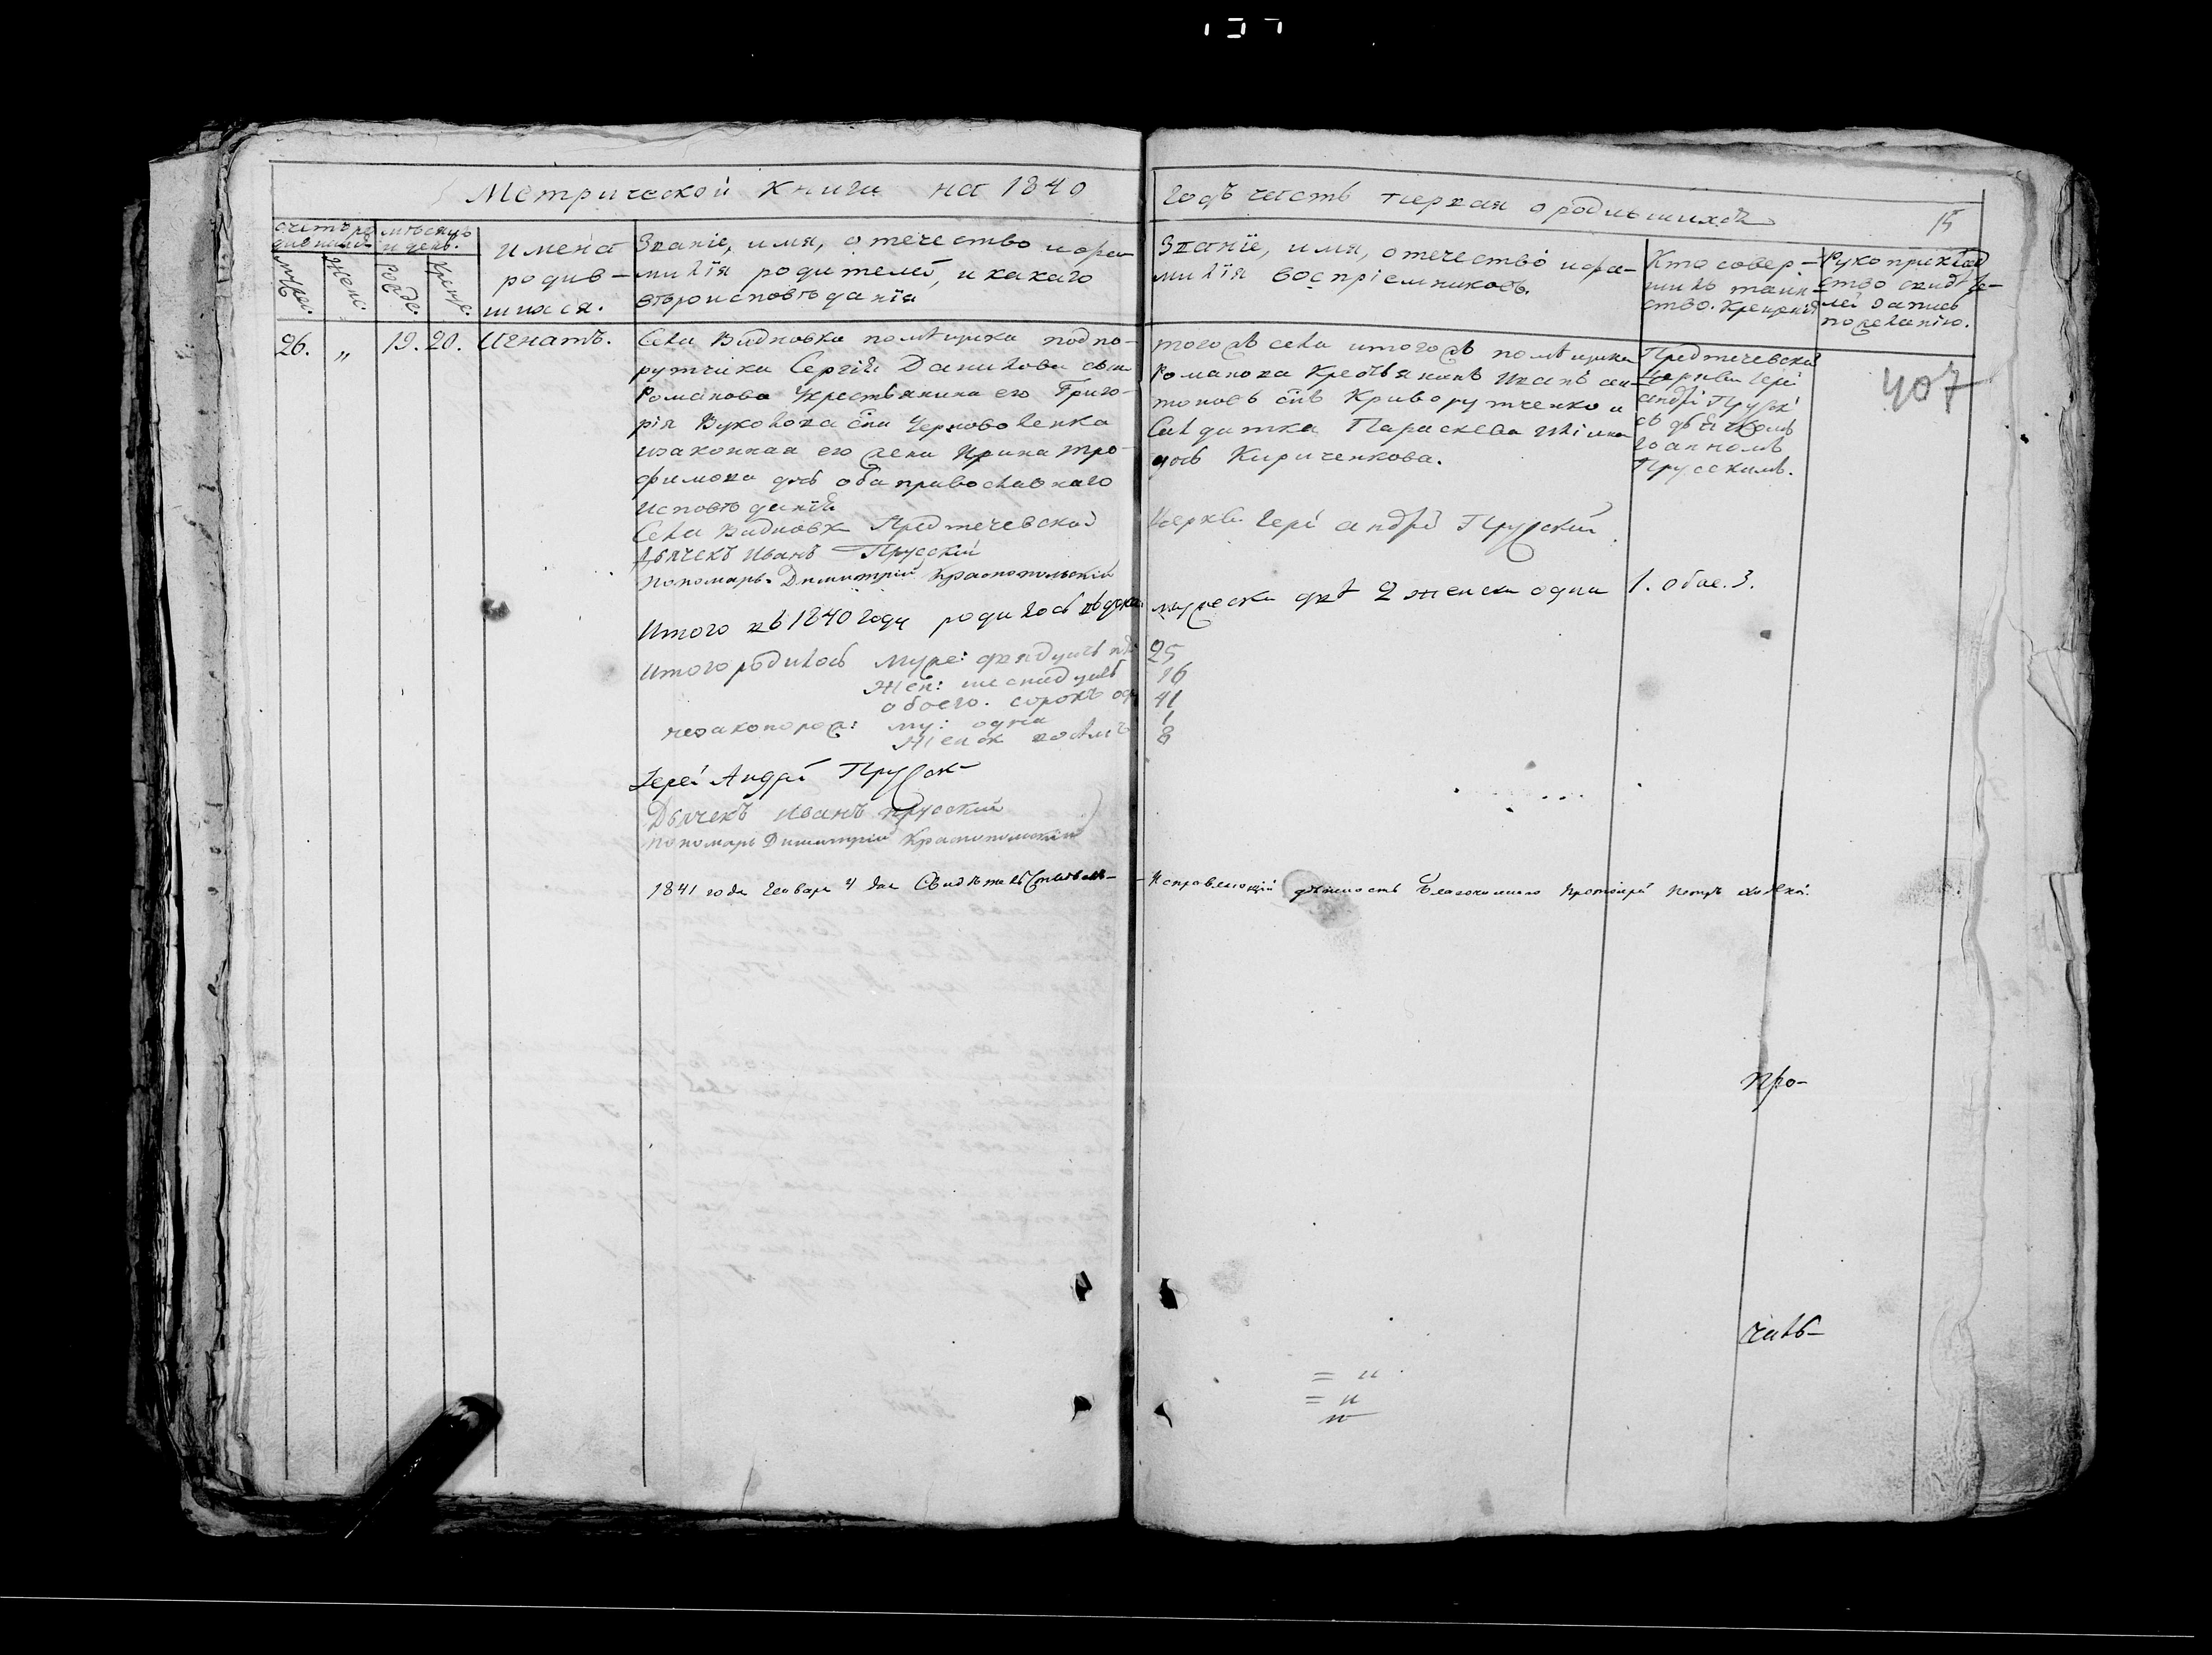 Метрической книги на 1840
годъ часть первая о родившихся
15
счетъ ро
дившихся
мѣсяцъ
и день.
муже:
Женс:
рожде:
Креще:
имена
родив-
шихся.
Званіе, имя, отечество и фа-
милія родителей, и какаго
вѣроисповѣданія
Званіе, имя, отечество и фа-
милія воспріемниковъ.
Кто совер-
шилъ таин-
ство. Крещенія
Рукоприклад
ство свидѣте-
лей запись
по желанію.
26.
„
19. 20.
Игнатъ.
Села Видновка помѣщика подпо-
рутчика Сергѣя Данилова сына
Романова Крестьянина его Григо-
рія сна Черноволенка
и законная его жена Ирина Тро-
фимова дчь оба православнаго
исповѣданія
тогожъ села и тогожъ помѣщика
Романова Крестьянинъ Иванъ
снъ Криворутченко и
Салдатка Параскева
дчь Кириченкова.
Предтечевской
Церкви Іерей
андрей Прускій
съ дьячкомъ
Іоанномъ
Прусскимъ.
407
Села Видновки Предтечевской
Церкви Іерей андрей Прускій
Дьячекъ Иванъ Прусскій
Пономарь Димитрій Краснопольскій
Итого въ 1840 году родилось
мужеска два 2 женска одна 1. обое. 3.
Итого родилось муже: двадцать пять 25
Жен: шеснадцать 16
обоего. сорокъ одинъ 41
незаконорож: му: одна 1
Женск восѣмъ 8
Іерей Андрей Прускій
Дьячекъ Иванъ Прусскій
Пономарь Димитрій Краснопольскій
1841 года Генваря 4 дня Свидѣтельствовалъ
Исправляющій должность Благочиннаго Протоіерей Петръ
про-
чалъ-